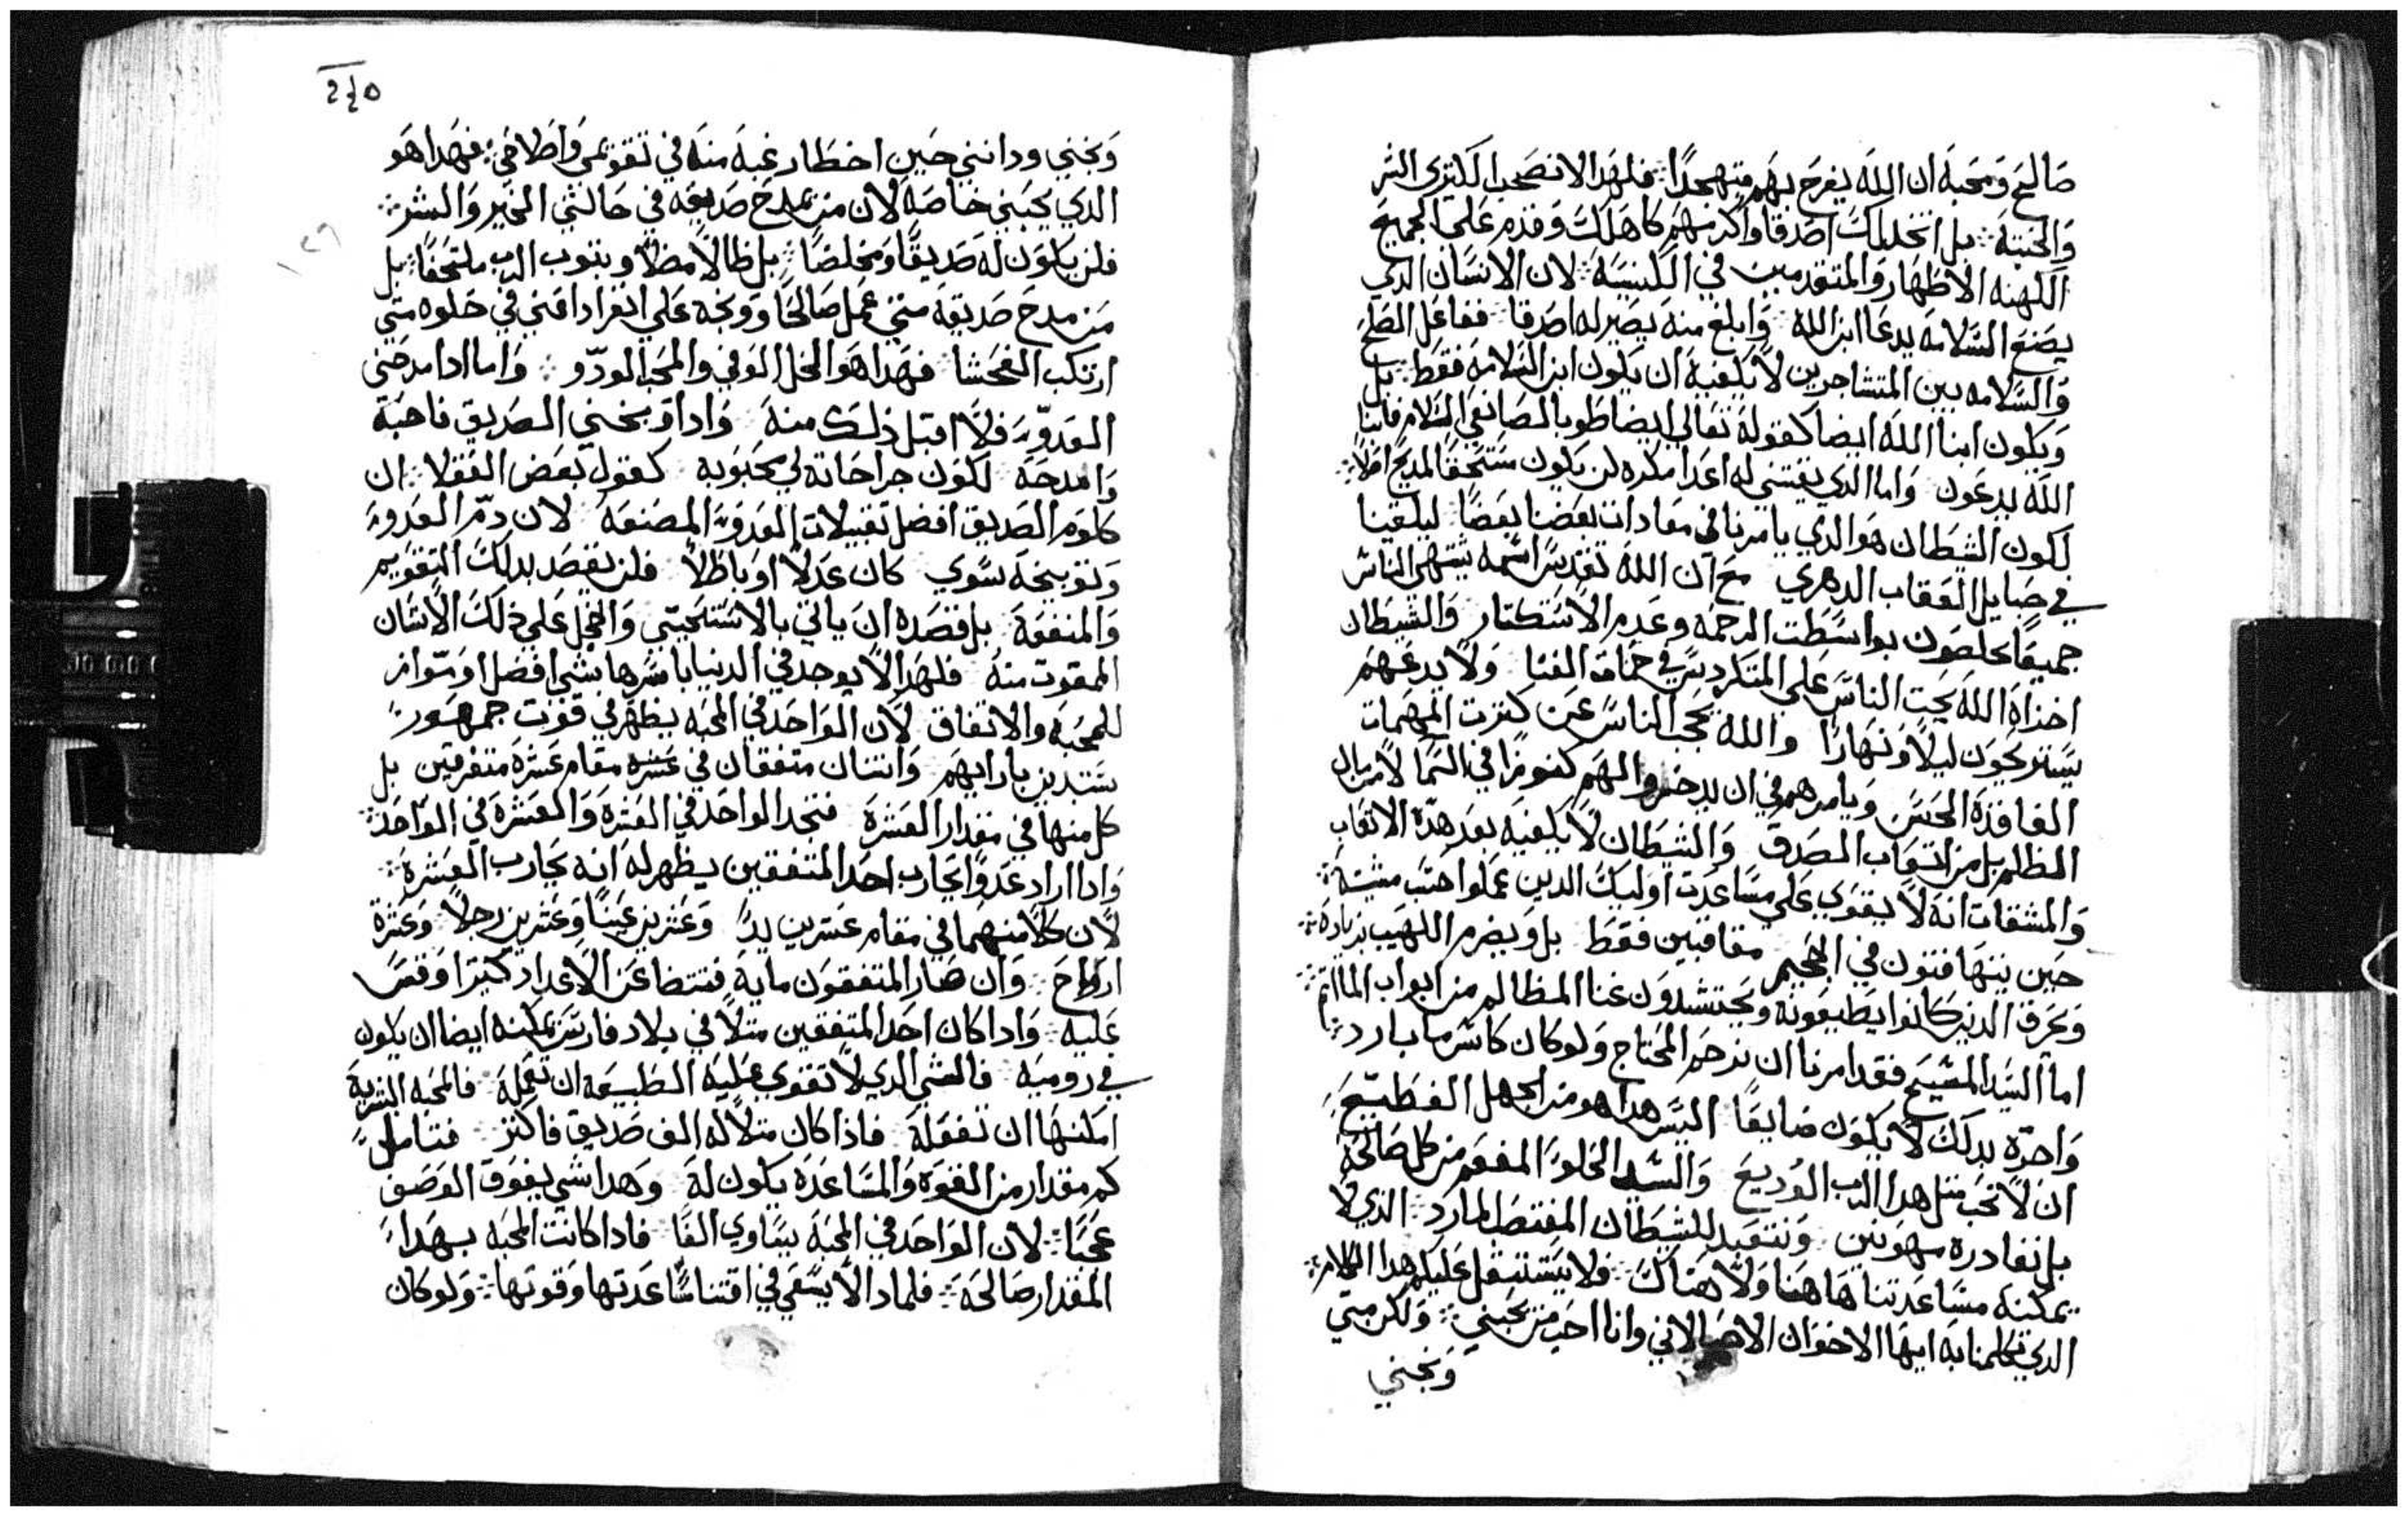 صالح ومحبه ان الله يفرح بهم متهجدًا فلهدا لا نصحب الكتيرى الشر
والخبته بل اتخد لك اصدقا واكرمهم كاهلك وقدم على الجميع
الكهنه الاطهار والمتقدمين في الكنيسه لان الانسان الدي
يصنع السلامه يدعا ابن الله وابلغ منه يصير له اصدقا ففاعل الصلح
والسلامه بين المتشاجرين لا يكفيه ان يكون ابن السلامه فقط بل
ويكون ابنا الله ايضا كقوله تعالي ايضا طوبا لصانعي السلام فانهم ابنا
الله يدعون واما الدي يقتني له اعدا مكره لن يكون مستحقًا لمديح اصلاً
لكون الشيطان هو الدي يامرنا في معادات بعضنا بعضًا ليلقينا
في حبايل العقاب الدهري مع ان الله تقدس اسمه يشتهي الناس
جميعًا يخلصون بواسطت الرحمه وعدم الاستكتار والشيطان
اخزاه الله يحت الناس على المتكردس في حماة الفنا ولا يدعهم
يستريحون ليلاً ونهارًا والله يحجب الناس عن كترت المهمات
الفاقدة الحس ويامرهم في ان يدخروا لهم كنوزًا في السما لا من مال
الظلم بل من اتعاب الصدق والشيطان لا يكفيه بعد هدة الاتعاب
والمشقات انه لا يقوي على مساعدت اوليك الدين عملوا حسب مشيته
حين يتهافتون في الجحيم معاقبين فقط بل ويضرم اللهيب بزيادة
ويحرق الدين كانوا يطيعونه ويحتشدون غنا المظالم من ابواب الماتم
اما السيد المسيح فقد امرنا ان نرحم المحتاج ولو كان كاس ما بارد
واجره بدلك لا يكون ضايعًا اليس هدا هو من الجهل الفظيع
ان لا نحب متل هدا الرب الوديع والسيد الحلو المفعم من كل صالحه
بل نغادره مهونين ونتعبد للشيطان المغتصب المارد الدي لا
يمكنه مساعدتنا هاهنا ولا هناك فلا يستتقل عليكم هدا الكلام
الدي تكلمنا به ايها الاخوان الاحبا لاني وانا احب من يحبني ولكن متي
وبخني
240
وبخني ودانني حين اخطا رغبه منه في تقويمي واصلاحي فهدا هو
الدي يحبني خاصه لان من يمدح صديقه في حالتي الخير والشر
فلن يكون له صديقًا ومخلصًا بل ظالاً مضلاً وبتوب الدب ملتحفًا بل
من مدح صديقه متي عمل صالحًا ووبخه على انفراد افني في خلوه متي
ارتكب الفحشا فهدا هو الخل الوفي والمحب الودّو واما ادا مدحني
العدوّ فلا اقبل دلك منه وادا وبخني الصديق فاحبه
وامدحه لكون جراحاته لي محبوبه كقول بعض الفضلا ان
كلوم الصديق افضل تقبيلات العدو المصنعه لان دمّ العدو
وتوبيخه سوي كان عدلاً او باطلاً فلن يقصد بدلك التقويم
والمنفعة بل قصده ان ياتي بالاستحيتي والخجل على دلك الانسان
الممقوت منه فلهدا لا يوجد في الدنيا باسرها بشي افضل اوموازٍ
للمحبه والاتفاق لان الواحد في المحبه يظهر في قوت جمهور
مستبدين بارايهم واتنان متفقان في عشره مقام عشره متفرقين بل
كل منها في مقدار العشرة فتجد الواحد في العشرة والعشرة في الواحد
وادا اراد عدوًا يحارب احد المتفقين يظهر له انه يحارب العشرة
لان كلاً منهما في مقام عشرين يدً وعشرين عينًا وعشرين رجلاً وعشرة
ارواح وان صار المتفقون مايه فتتضاعف الاعداد كتيرًا وقس
عليه وادا كان احد المتفقين متلاً في بلاد فارس يمكنه ايضا ان يكون
في روميه فالشي الدي لا تقوى عليه الطبيعه ان تعمله فالمحبه القريبه
امكنها ان تفعله فادا كان متلاً له الف صديق فاكتر فتامل
كم مقدار من القوه والمساعدة يكون له وهدا شي يفوق الوصف
عجبًا لان الواحد في المحبه يساوي الفًا فادا كانت المحبه بهدا
المقدار صالحه فلمادا لا يسعي في اقتنا مساعدتها وقوتها ولو كان